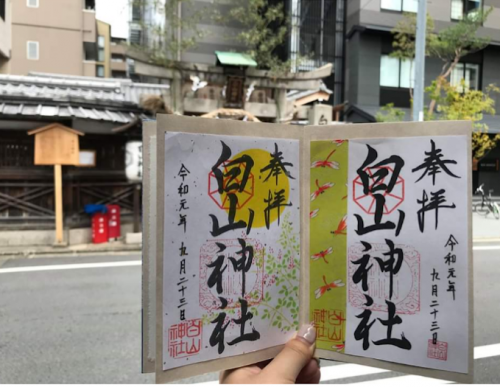 奉拝
白山神社
令和元年 九月二十三日
白山神社
奉拝
白山神社
令和元年 九月二十三日
白山神社